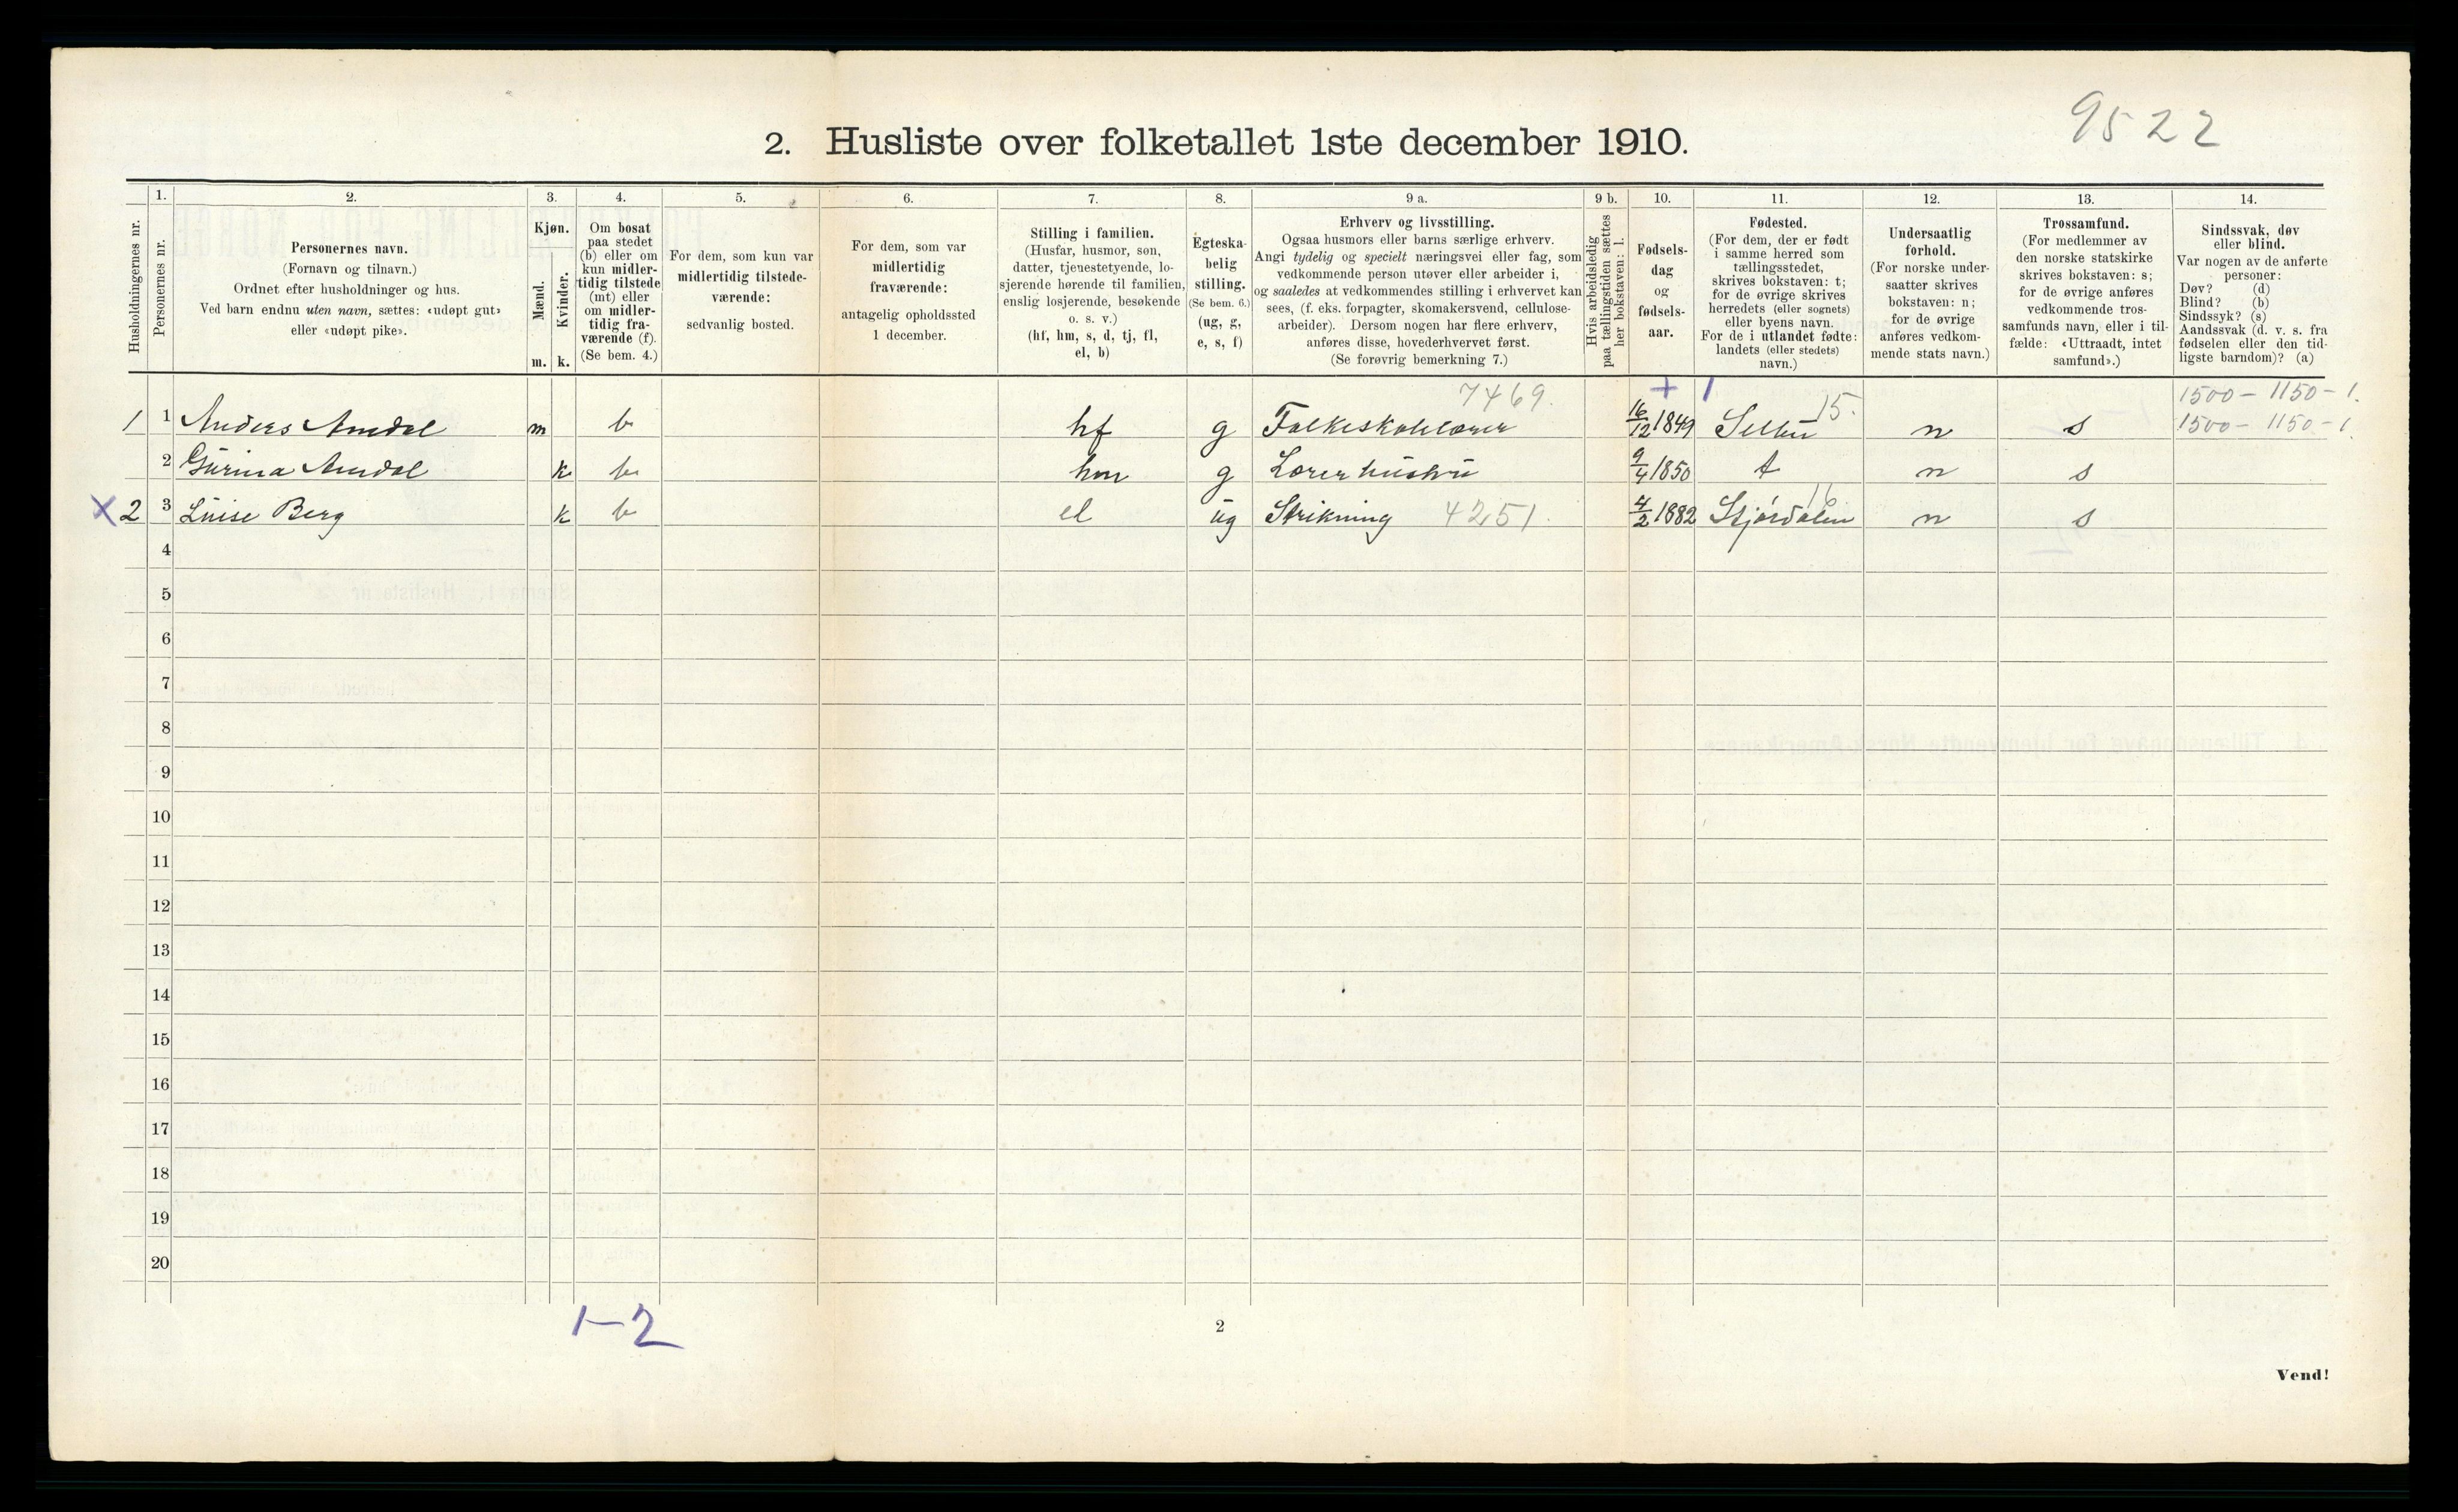 9522
2. Husliste over folketallet 1ste december 1910.
Husholdningernes nr.
1.
Personernes nr.
2.
Personernes navn.
(Fornavn og tilnavn.)
Ordnet efter husholdninger og hus.
Ved barn endnu uten navn, sættes: «udøpt gut»
eller «udøpt pike».
3.
Kjøn.
Mænd.
m.
Kvinder.
k.
4.
Om bosat
paa stedet
(b) eller om
kun midler-
tidig tilstede
(mt) eller
om midler-
tidig fra-
værende (f).
(Se bem. 4.)
5.
For dem, som kun var
midlertidig tilstede-
værende:
sedvanlig bosted.
6.
For dem, som var
midlertidig
fraværende:
antagelig opholdssted
1 december.
7.
Stilling i familien.
(Husfar, husmor, søn,
datter, tjenestetyende, lo-
sjerende hørende til familien,
enslig losjerende, besøkende
o. s. v.)
(hf, hm, s, d, tj, fl,
el, b)
8.
Egteska-
belig
stilling.
(Se bem. 6.)
(ug, g,
e, s, f)
9 a.
Erhverv og livsstilling.
Ogsaa husmors eller barns særlige erhverv.
Angi tydelig og specielt næringsvei eller fag, som
vedkommende person utøver eller arbeider i,
og saaledes at vedkommendes stilling i erhvervet kan
sees, (f. eks. forpagter, skomakersvend, cellulose-
arbeider). Dersom nogen har flere erhverv,
anføres disse, hovederhvervet først.
(Se forøvrig bemerkning 7.)
9 b.
Hvis arbeidsledig
paa tællingstiden sættes
her bokstaven: l.
10.
Fødsels-
dag
og
fødsels-
aar.
11.
Fødested.
(For dem, der er født
i samme herred som
tællingsstedet,
skrives bokstaven: t;
for de øvrige skrives
herredets (eller sognets)
eller byens navn.
For de i utlandet fødte:
landets (eller stedets)
navn.)
12.
Undersaatlig
forhold.
(For norske under-
saatter skrives
bokstaven: n;
for de øvrige
anføres vedkom-
mende stats navn.)
13.
Trossamfund.
(For medlemmer av
den norske statskirke
skrives bokstaven: s;
for de øvrige anføres
vedkommende tros-
samfunds navn, eller i til-
fælde: «Uttraadt, intet
samfund».)
14.
Sindssvak, døv
eller blind.
Var nogen av de anførte
personer:
Døv? (d)
Blind? (b)
Sindssyk? (s)
Aandssvak (d. v. s. fra
fødselen eller den tid-
ligste barndom)? (a)
7469. + 1 15. 1500 – 1150 – 1.
1 1 Anders Amdal m b hf g Folkeskolelærer 16/12 1849 Selbu n s 1500 – 1150 – 1.
2 Gurina Amdal k b hm g Lærerhustru 9/4 1850 t n s
16
X 2 3 Luise Berg k b el ug Strikning 4251. 4/2 1882 Stjørdalen n s
4
5
6
7
8
9
10
11
12
13
14
15
16
17
18
19
20
1–2
2
Vend!